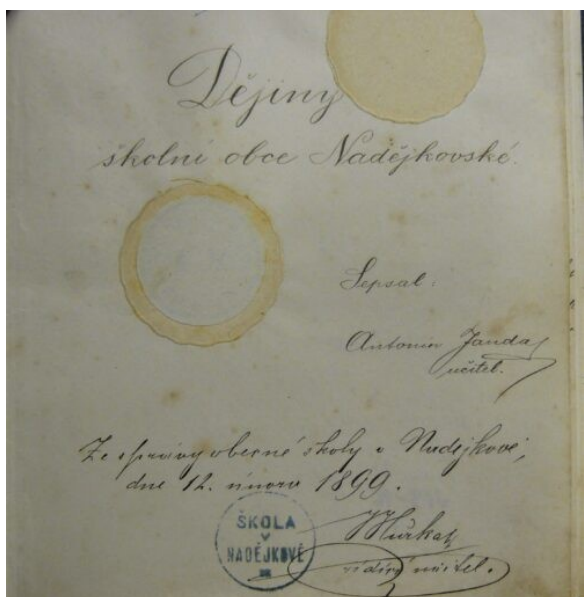 Dějiny
školní obce Nadějkovské.
Sepsal:
Antonín Janda
učitel.
Ze správy obecné školy v Nadějkově,
dne 12. února 1899.
ŠKOLA
V
NADĚJKOVĚ
řídící učitel.